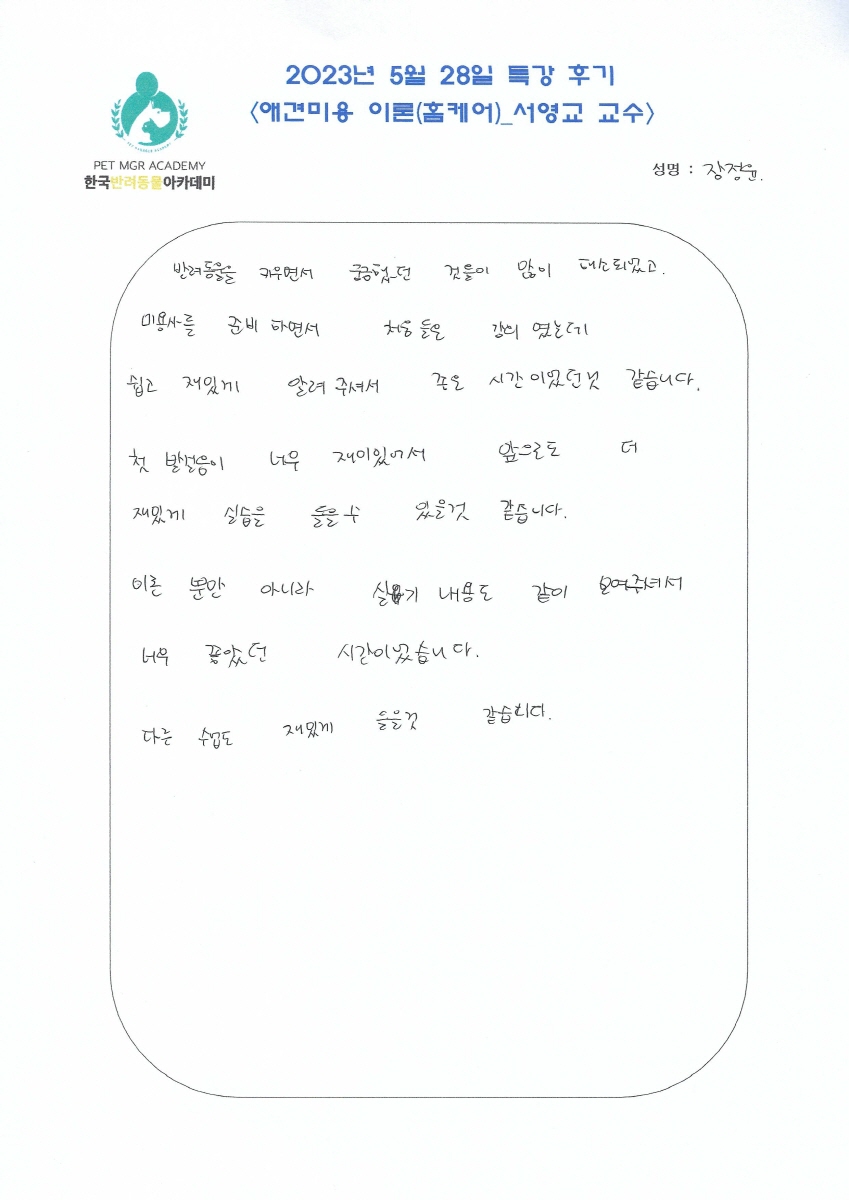 2023년 5월 28일 특강 후기
<애견미용 이론(홈케어)_서영교 교수>
PET MGR ACADEMY
한국반려동물아카데미
성명 : 장정윤.
반려동물을 키우면서 궁금했던 것들이 많이 해소되었고.
미용사를 준비 하면서 처음 들은 강의 였는데
쉽고 재밌게 알려 주셔서 좋은 시간 이었던것 같습니다.
첫 발걸음이 너무 재미있어서 앞으로도 더
재밌게 실습을 들을 수 있을것 같습니다.
이론 뿐만 아니라 내용도 같이 보여주셔서
너무 좋았던 시간이었습니다.
다른 수업도 재밌게 들을것 같습니다.